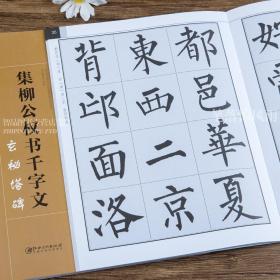 都邑華夏
東西二京
背邙面洛
集柳公權书千字文
玄秘塔碑